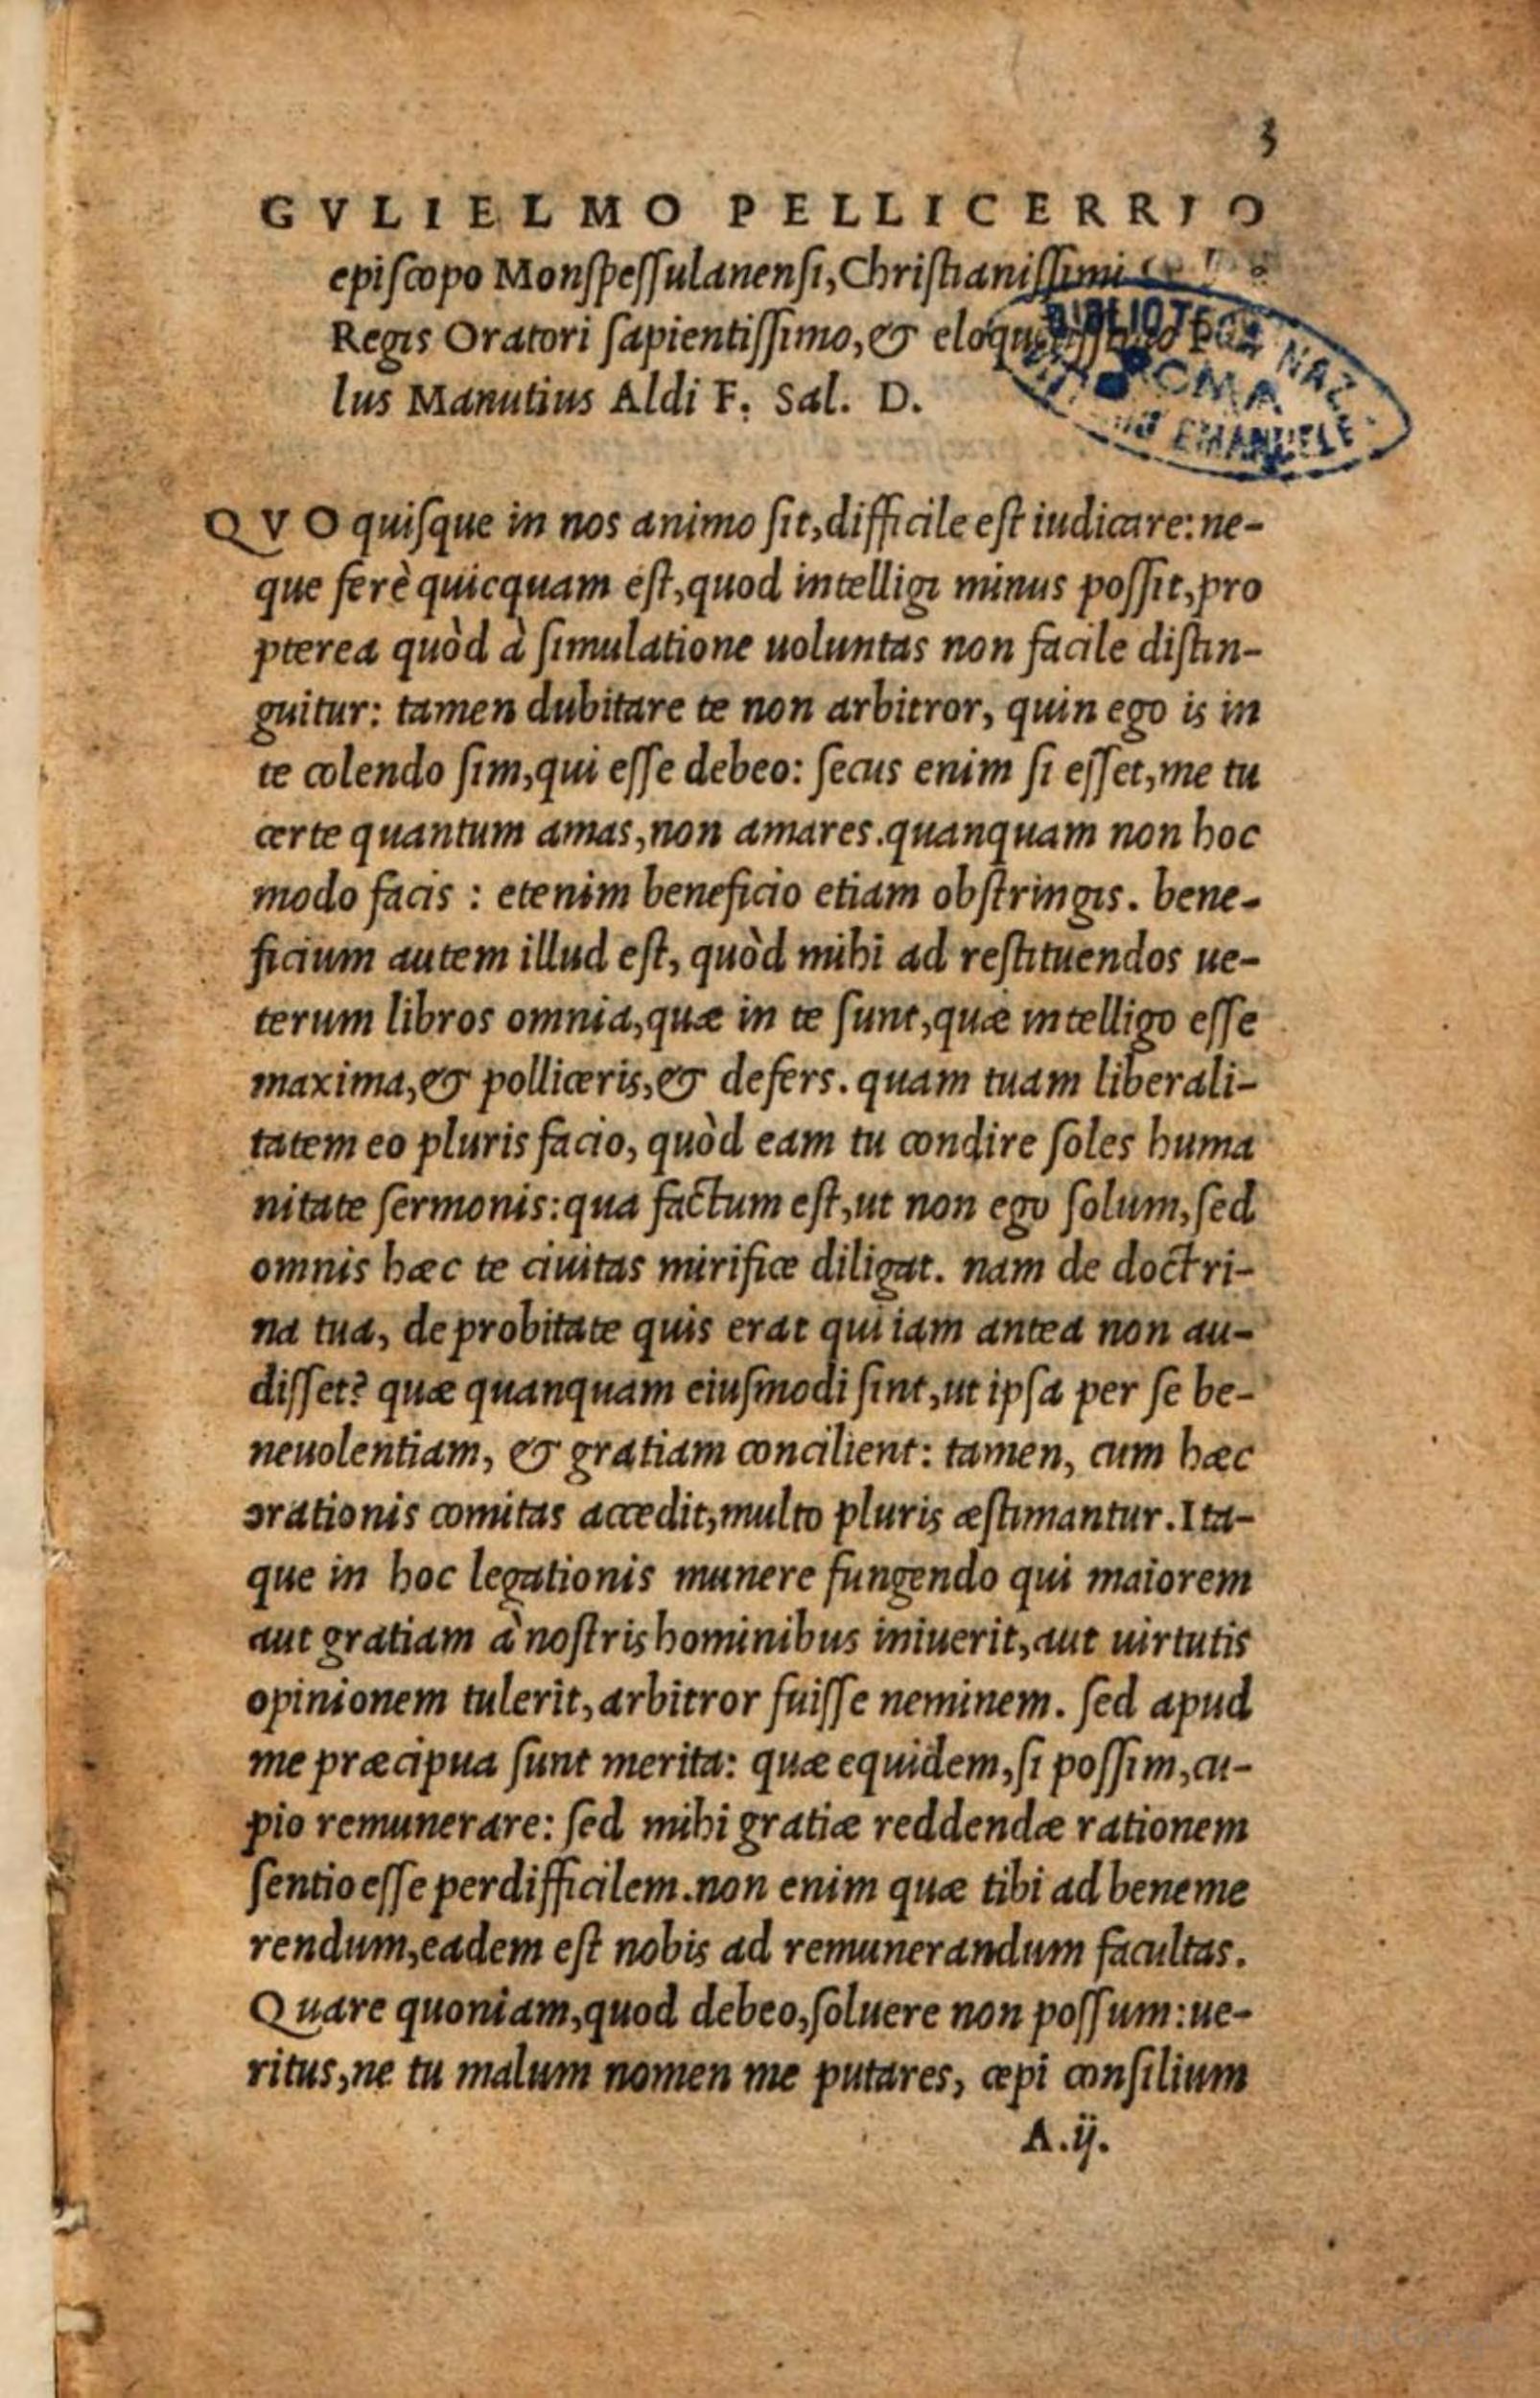 3
GVLIELMO PELLICERRIO
episcopo Monspessulanensi, Christianissimi
Regis Oratori sapientissimo, &
lus Manutius Aldi F. Sal. D.
BIBLIOTECA NAZ.
ROMA
EMANUELE
QVO quisque in nos animo sit, difficile est iudicare: ne-
que ferè quicquam est, quod intelligi minus possit, pro
pterea quòd à simulatione uoluntas non facile distin-
guitur: tamen dubitare te non arbitror, quin ego is in
te colendo sim, qui esse debeo: secus enim si esset, me tu
certe quantum amas, non amares. quanquam non hoc
modo facis : etenim beneficio etiam obstringis. bene-
ficium autem illud est, quòd mihi ad restituendos ue-
terum libros omnia, quæ in te sunt, quæ intelligo esse
maxima, & polliceris, & defers. quam tuam liberali-
tatem eo pluris facio, quòd eam tu condire soles huma
nitate sermonis: qua factum est, ut non ego solum, sed
omnis hæc te ciuitas mirifice diligat. nam de doctri-
na tua, de probitate quis erat qui iam antea non au-
disset? quæ quanquam eiusmodi sint, ut ipsa per se be-
neuolentiam, & gratiam concilient: tamen, cum hæc
orationis comitas accedit, multo pluris æstimantur. Ita-
que in hoc legationis munere fungendo qui maiorem
aut gratiam à nostris hominibus iniuerit, aut uirtutis
opinionem tulerit, arbitror fuisse neminem. sed apud
me præcipua sunt merita: quæ equidem, si possim, cu-
pio remunerare: sed mihi gratiæ reddendæ rationem
sentio esse perdifficilem. non enim quæ tibi ad beneme
rendum, eadem est nobis ad remunerandum facultas.
Quare quoniam, quod debeo, soluere non possum: ue-
ritus, ne tu malum nomen me putares, cœpi consilium
A.ij.